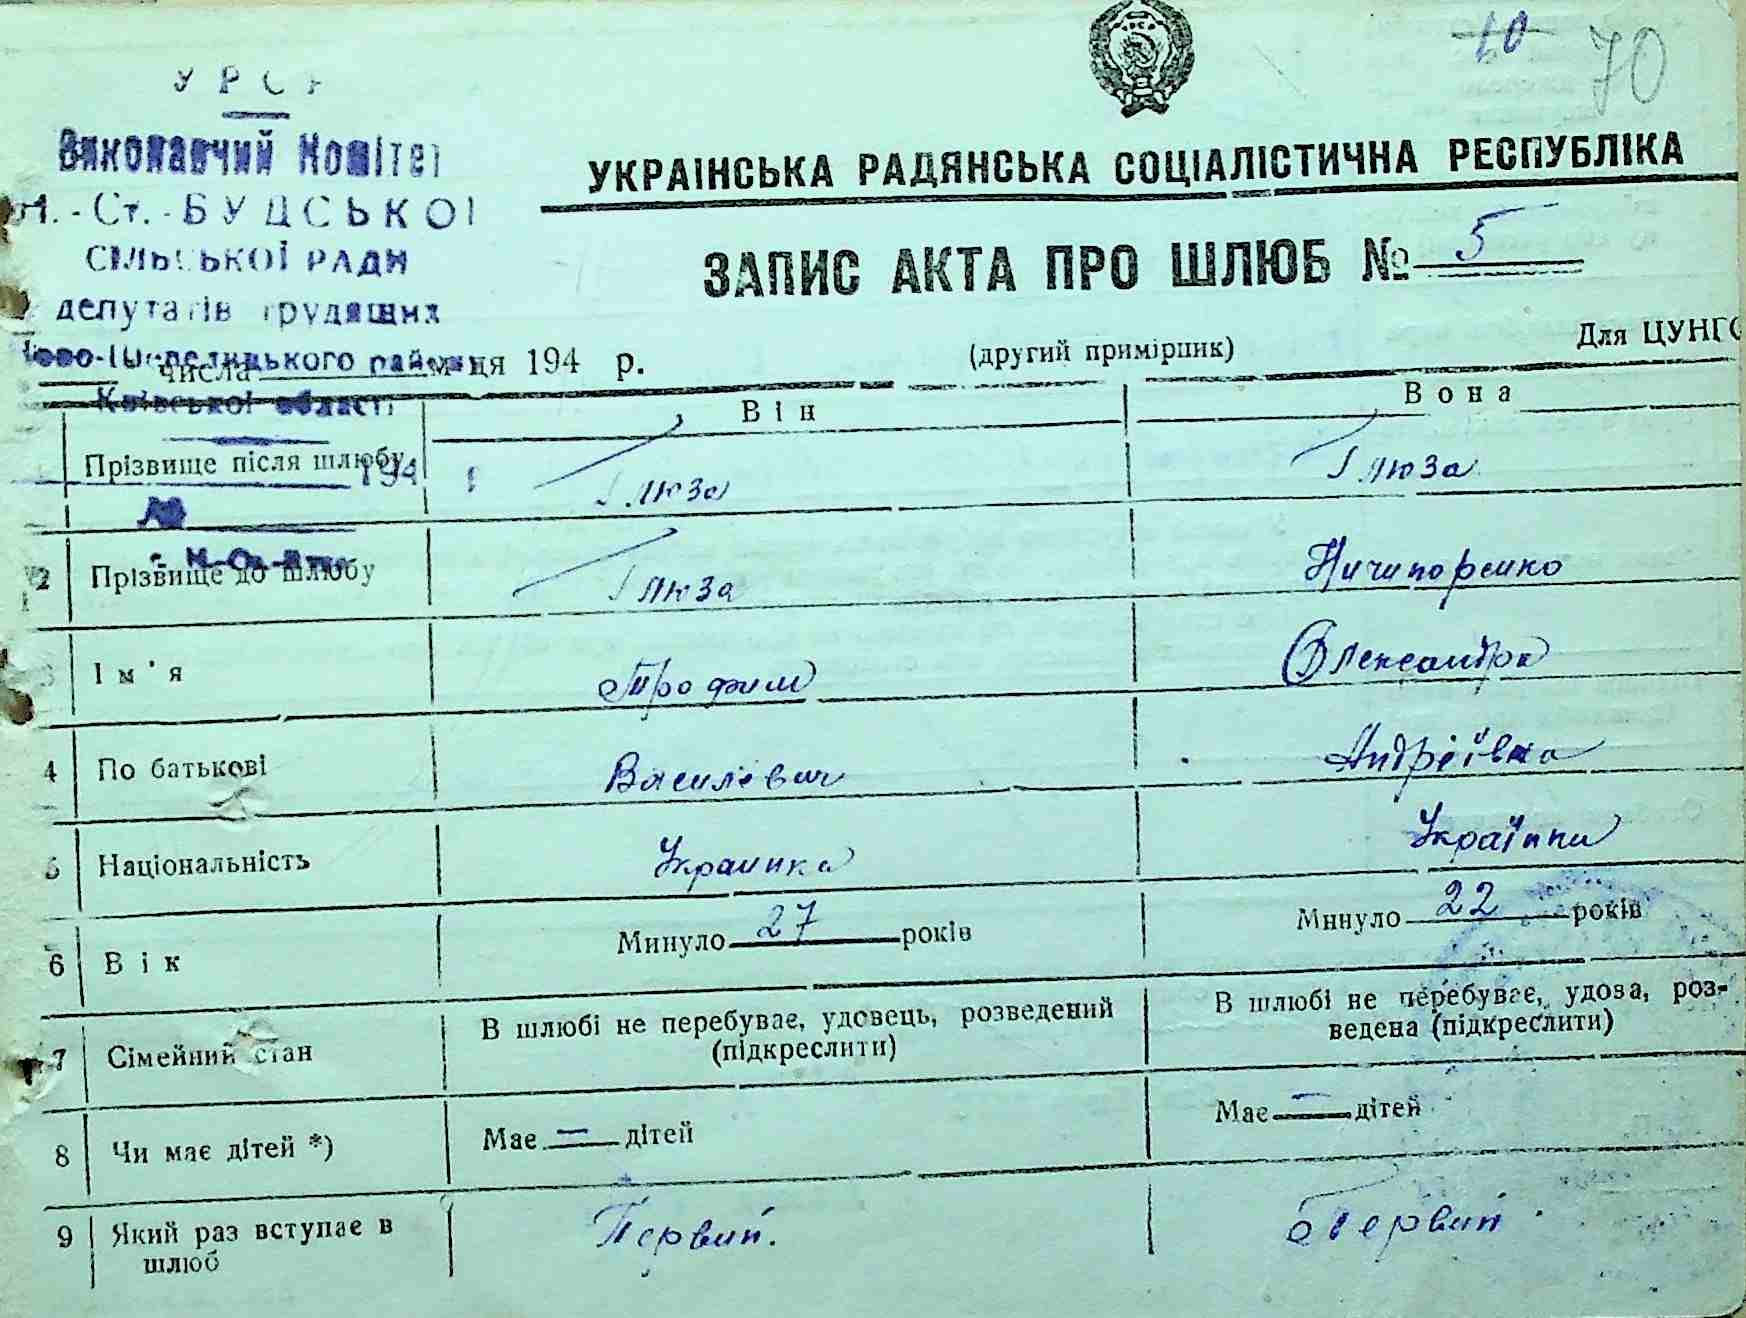 10 70
УРСР
Виконавчий Комітет
М.-Ст.-БУДСЬКОЇ
СІЛЬСЬКОЇ РАДИ
депутатів трудящих
Ново-Шепелицького району
Київської області
194
с. М-Ст-
УКРАІНСЬКА РАДЯНСЬКА СОЦІАЛІСТИЧНА РЕСПУБЛІКА
ЗАПИС АКТА ПРО ШЛЮБ № 5
(другий примірник) Для ЦУНГО
числа місяця 194 р.
Він Вона
Прізвище після шлюбу Глюза Глюза
2 Прізвище до шлюбу Глюза Ничипоренко
3 Ім'я Трофим Олександра
4 По батькові Василевич Андріївна
5 Національність Украинка Українка
6 Вік Минуло 27 років Минуло 22 років
7 Сімейний стан В шлюбі не перебуває, удовець, розведений (підкреслити) В шлюбі не перебуває, удова, роз-
ведена (підкреслити)
8 Чи має дітей *) Має — дітей Має — дітей
9 Який раз вступає в Первий. Первий
шлюб